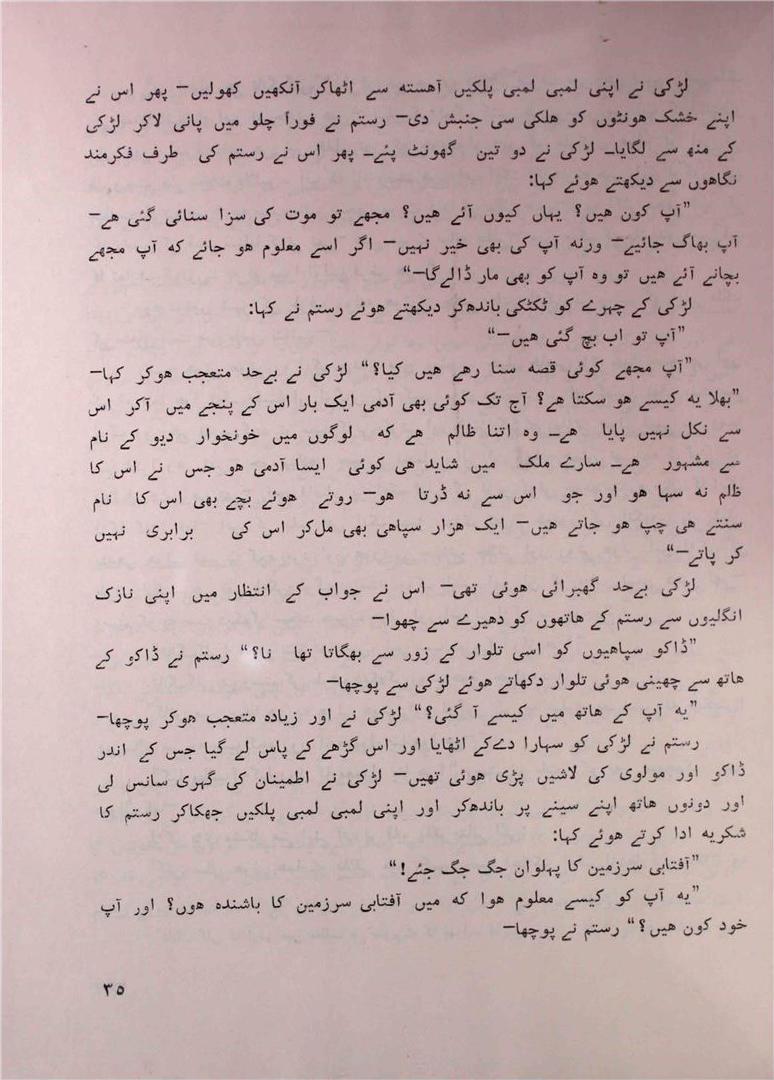 لڑکی نے اپنی لمبی لمبی پلکیں آهسته سے اٹھاکر آنکھیں کھولیں— پھر اس نے
اپنے خشک هونٹوں کو هلکی سی جنبش دی— رستم نے فوراً چلو میں پانی لاکر لڑکی
کے منھ سے لگایا۔ لڑکی نے دو تین گھونٹ پئے۔ پھر اس نے رستم کی طرف فکرمند
نگاهوں سے دیکھتے هوئے کہا:
”آپ کون هیں؟ یہاں کیوں آئے هیں؟ مجھے تو موت کی سزا سنائی گئی هے—
آپ بھاگ جائیے— ورنه آپ کی بھی خیر نہیں— اگر اسے معلوم هو جائے که آپ مجھے
بچانے آئے هیں تو وه آپ کو بھی مار ڈالےگا—“
لڑکی کے چہرے کو ٹکٹکی باندھکر دیکھتے هوئے رستم نے کہا:
”آپ تو اب بچ گئی هیں—“
”آپ مجھے کوئی قصه سنا رهے هیں کیا؟“ لڑکی نے بےحد متعجب هوکر کہا—
”بھلا یه کیسے هو سکتا هے؟ آج تک کوئی بھی آدمی ایک بار اس کے پنجے میں آکر اس
سے نکل نہیں پایا هے۔ وه اتنا ظالم هے که لوگوں میں خونخوار دیو کے نام
سے مشہور هے۔ سارے ملک میں شاید هی کوئی ایسا آدمی هو جس نے اس کا
ظلم نه سہا هو اور جو اس سے نه ڈرتا هو— روتے هوئے بچے بھی اس کا نام
سنتے هی چپ هو جاتے هیں— ایک هزار سپاهی بھی ملکر اس کی برابری نہیں
کر پاتے—“
لڑکی بےحد گھبرائی هوئی تھی— اس نے جواب کے انتظار میں اپنی نازک
انگلیوں سے رستم کے هاتھوں کو دھیرے سے چھوا—
”ڈاکو سپاهیوں کو اسی تلوار کے زور سے بھگاتا تھا نا؟“ رستم نے ڈاکو کے
هاتھ سے چھینی هوئی تلوار دکھاتے هوئے لڑکی سے پوچھا—
”یه آپ کے هاتھ میں کیسے آ گئی؟“ لڑکی نے اور زیاده متعجب هوکر پوچھا—
رستم نے لڑکی کو سہارا دےکے اٹھایا اور اس گڑھے کے پاس لے گیا جس کے اندر
ڈاکو اور مولوی کی لاشیں پڑی هوئی تھیں— لڑکی نے اطمینان کی گہری سانس لی
اور دونوں هاتھ اپنے سینے پر باندھکر اور اپنی لمبی لمبی پلکیں جھکاکر رستم کا
شکریه ادا کرتے هوئے کہا:
”آفتابی سرزمین کا پہلوان جگ جگ جئے!“
”یه آپ کو کیسے معلوم هوا که میں آفتابی سرزمین کا باشنده هوں؟ اور آپ
خود کون هیں؟“ رستم نے پوچھا—
۳۵